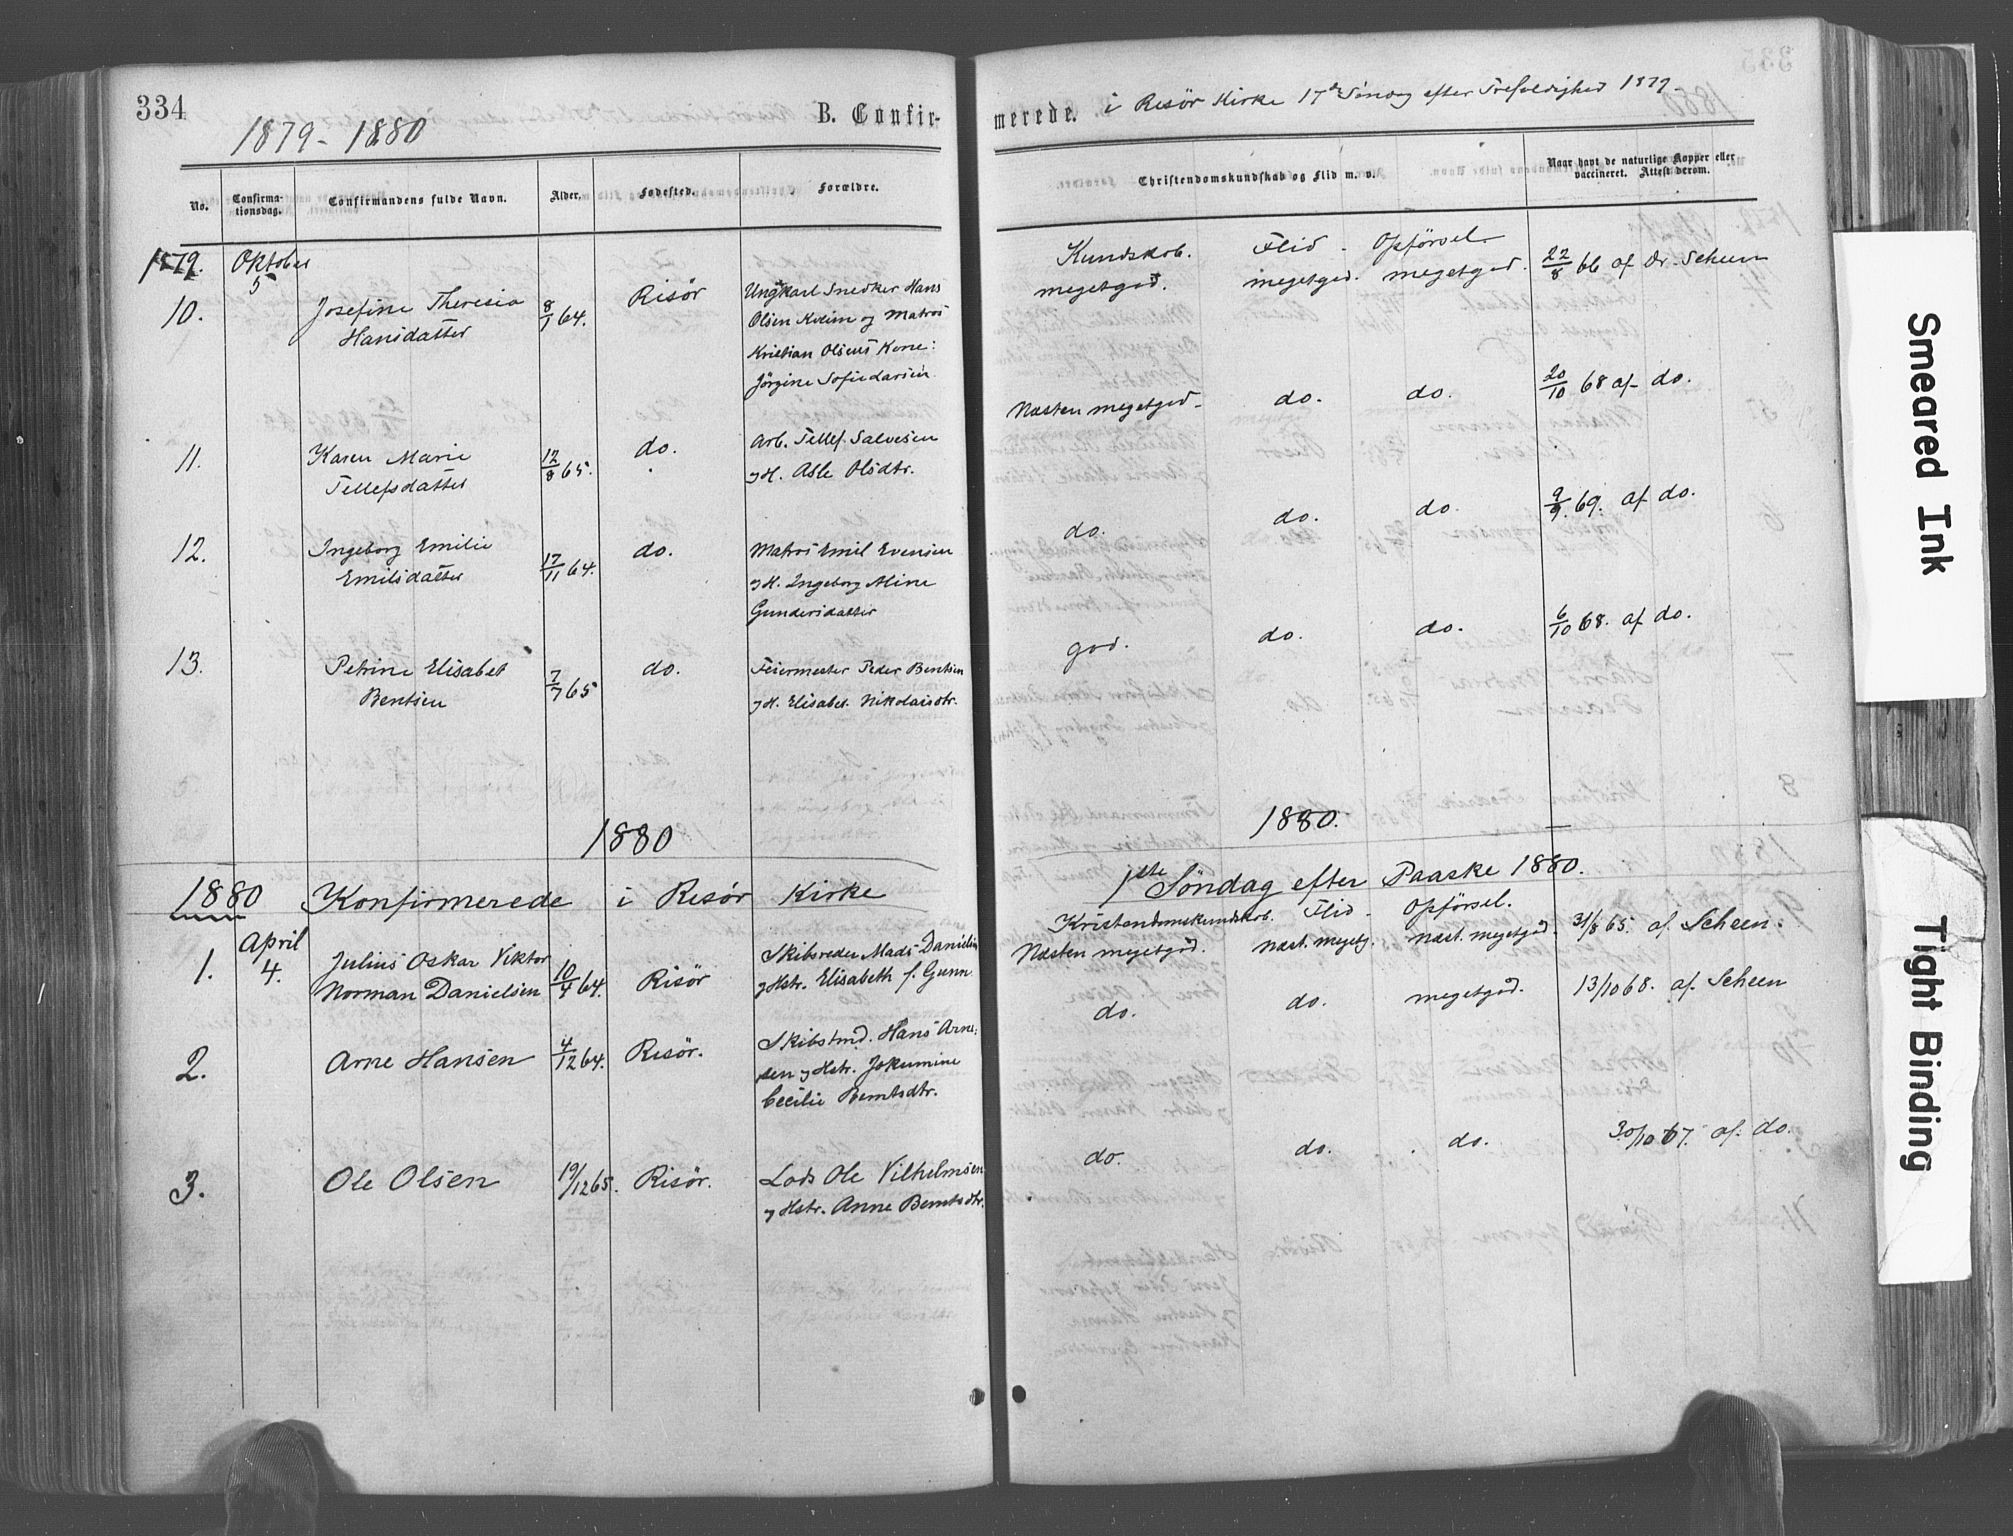 334
1879-1880
B. Confir-
merede.
i Risör Kirke 17de Söndag efter Trefoldighed 1879.
No.
Confirma-
tionsdag.
Confirmandens fulde Navn.
Alder.
Fødested.
Forældre.
Christendomskundskab og Flid m. v.
Naar havt de naturlige Kopper eller
vaccineret. Attest derom.
1879.
Oktober
5
Kundskab. Flid. Opförsel.
10.
Josefine Theresia
Hansdatter
8/1 64.
Risör
Ungkarl Snedker Hans
Olsen Kveim og Matros
Kristian Olsens Kone:
Jörgine Sofie Larsen
megetgod. megetgod. megetgod. 22/8 66 af Dr. Scheen
11.
Karen Marie
Tellefsdatter
12/8 65.
do.
Arb. Tellef Salvesen
og H. Asle Olsdtr.
Næsten megetgod. do. do. 20/10 68 af do.
12.
Ingeborg Emilie
Emilsdatter
17/11 64.
do.
Matros Emil Evensen
og H. Ingeborg Aline
Gundersdatter
do. do. do. 9/9. 69. af do.
13.
Petrine Elisabet
Bentsen
7/7 65
do.
Feiermester Peder Bentsen
og H. Elisabet Nikolaisdtr.
god. do. do. 6/10 68. af do.
1880
1880.
1880 Konfirmerede i Risör Kirke
1ste Söndag efter Paaske 1880.
Kristendomskundskab. Flid. Opförsel.
1.
April
4.
Julius Oskar Viktor
Norman Danielsen
10/4 64.
Risör
Skibsreder Mads Danielsen
og Hstr. Elisabeth f. Gunn
Næsten megetgod. Næst. megetg. Næst. megetgod. 31/8 65. af Scheen.
2.
Arne Hansen
4/12 64.
Risör.
Skibstmd. Hans Arne-
sen og Hstr. Jokumine
Cecilie Berntsdtr.
do. do. megetgod. 13/10 68. af Scheen
3.
Ole Olsen
19/12 65.
Risör.
Lods Ole Vilhelmsen
og Hstr. Anne Berntsdtr.
do. do. do. 30/10 67. af do.
Smeared Ink
Tight Binding